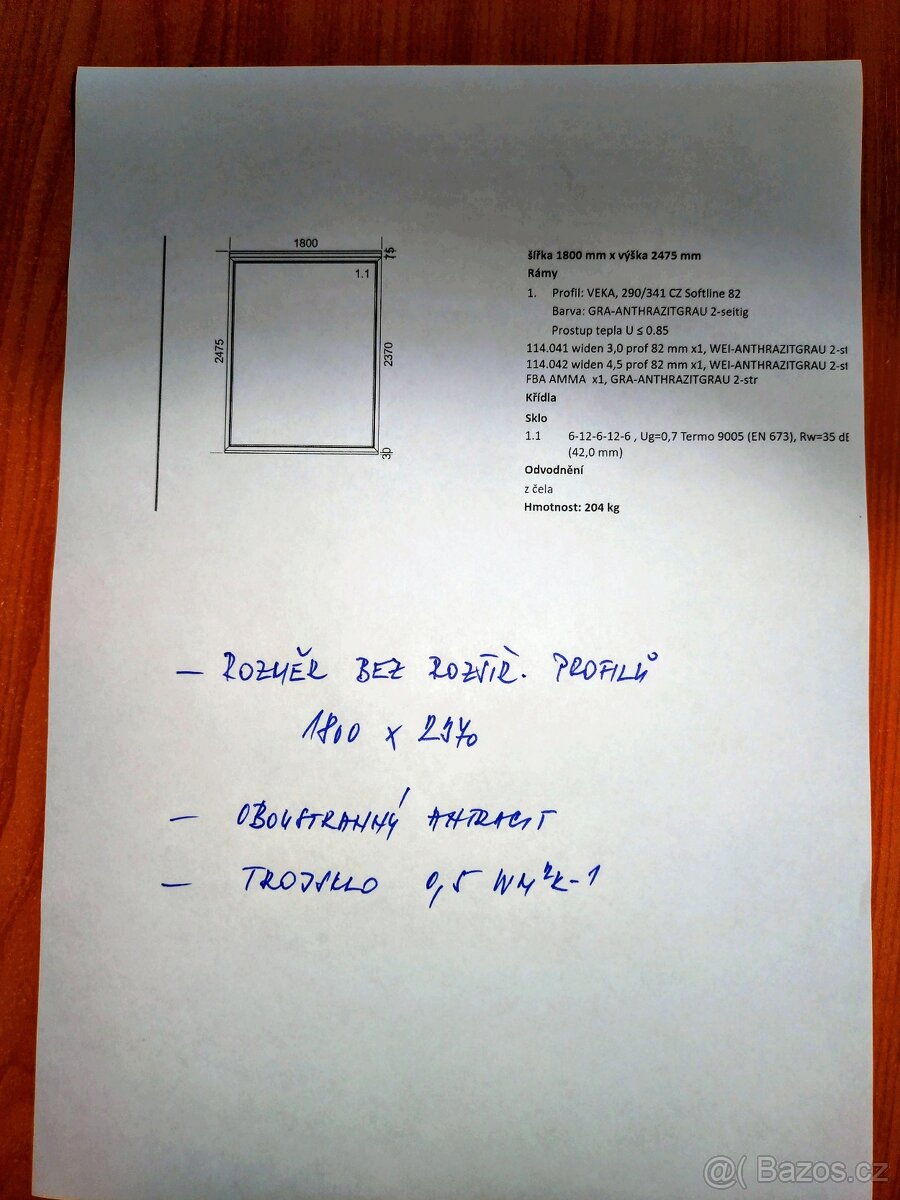 1800
75
1.1
2475
2370
30
šířka 1800 mm x výška 2475 mm
Rámy
1. Profil: VEKA, 290/341 CZ Softline 82
Barva: GRA-ANTHRAZITGRAU 2-seitig
Prostup tepla U ≤ 0.85
114.041 widen 3,0 prof 82 mm x1, WEI-ANTHRAZITGRAU 2-st
114.042 widen 4,5 prof 82 mm x1, WEI-ANTHRAZITGRAU 2-st
FBA AMMA x1, GRA-ANTHRAZITGRAU 2-str
Křídla
Sklo
1.1 6-12-6-12-6 , Ug=0,7 Termo 9005 (EN 673), Rw=35 dB
(42,0 mm)
Odvodnění
z čela
Hmotnost: 204 kg
— ROZMĚR BEZ ROZŠÍŘ. PROFILŮ
1800 x 2370
— OBOUSTRANNÝ ANTRACIT
— TROJSKLO 0,5 WM²K-1
@( Bazos.cz